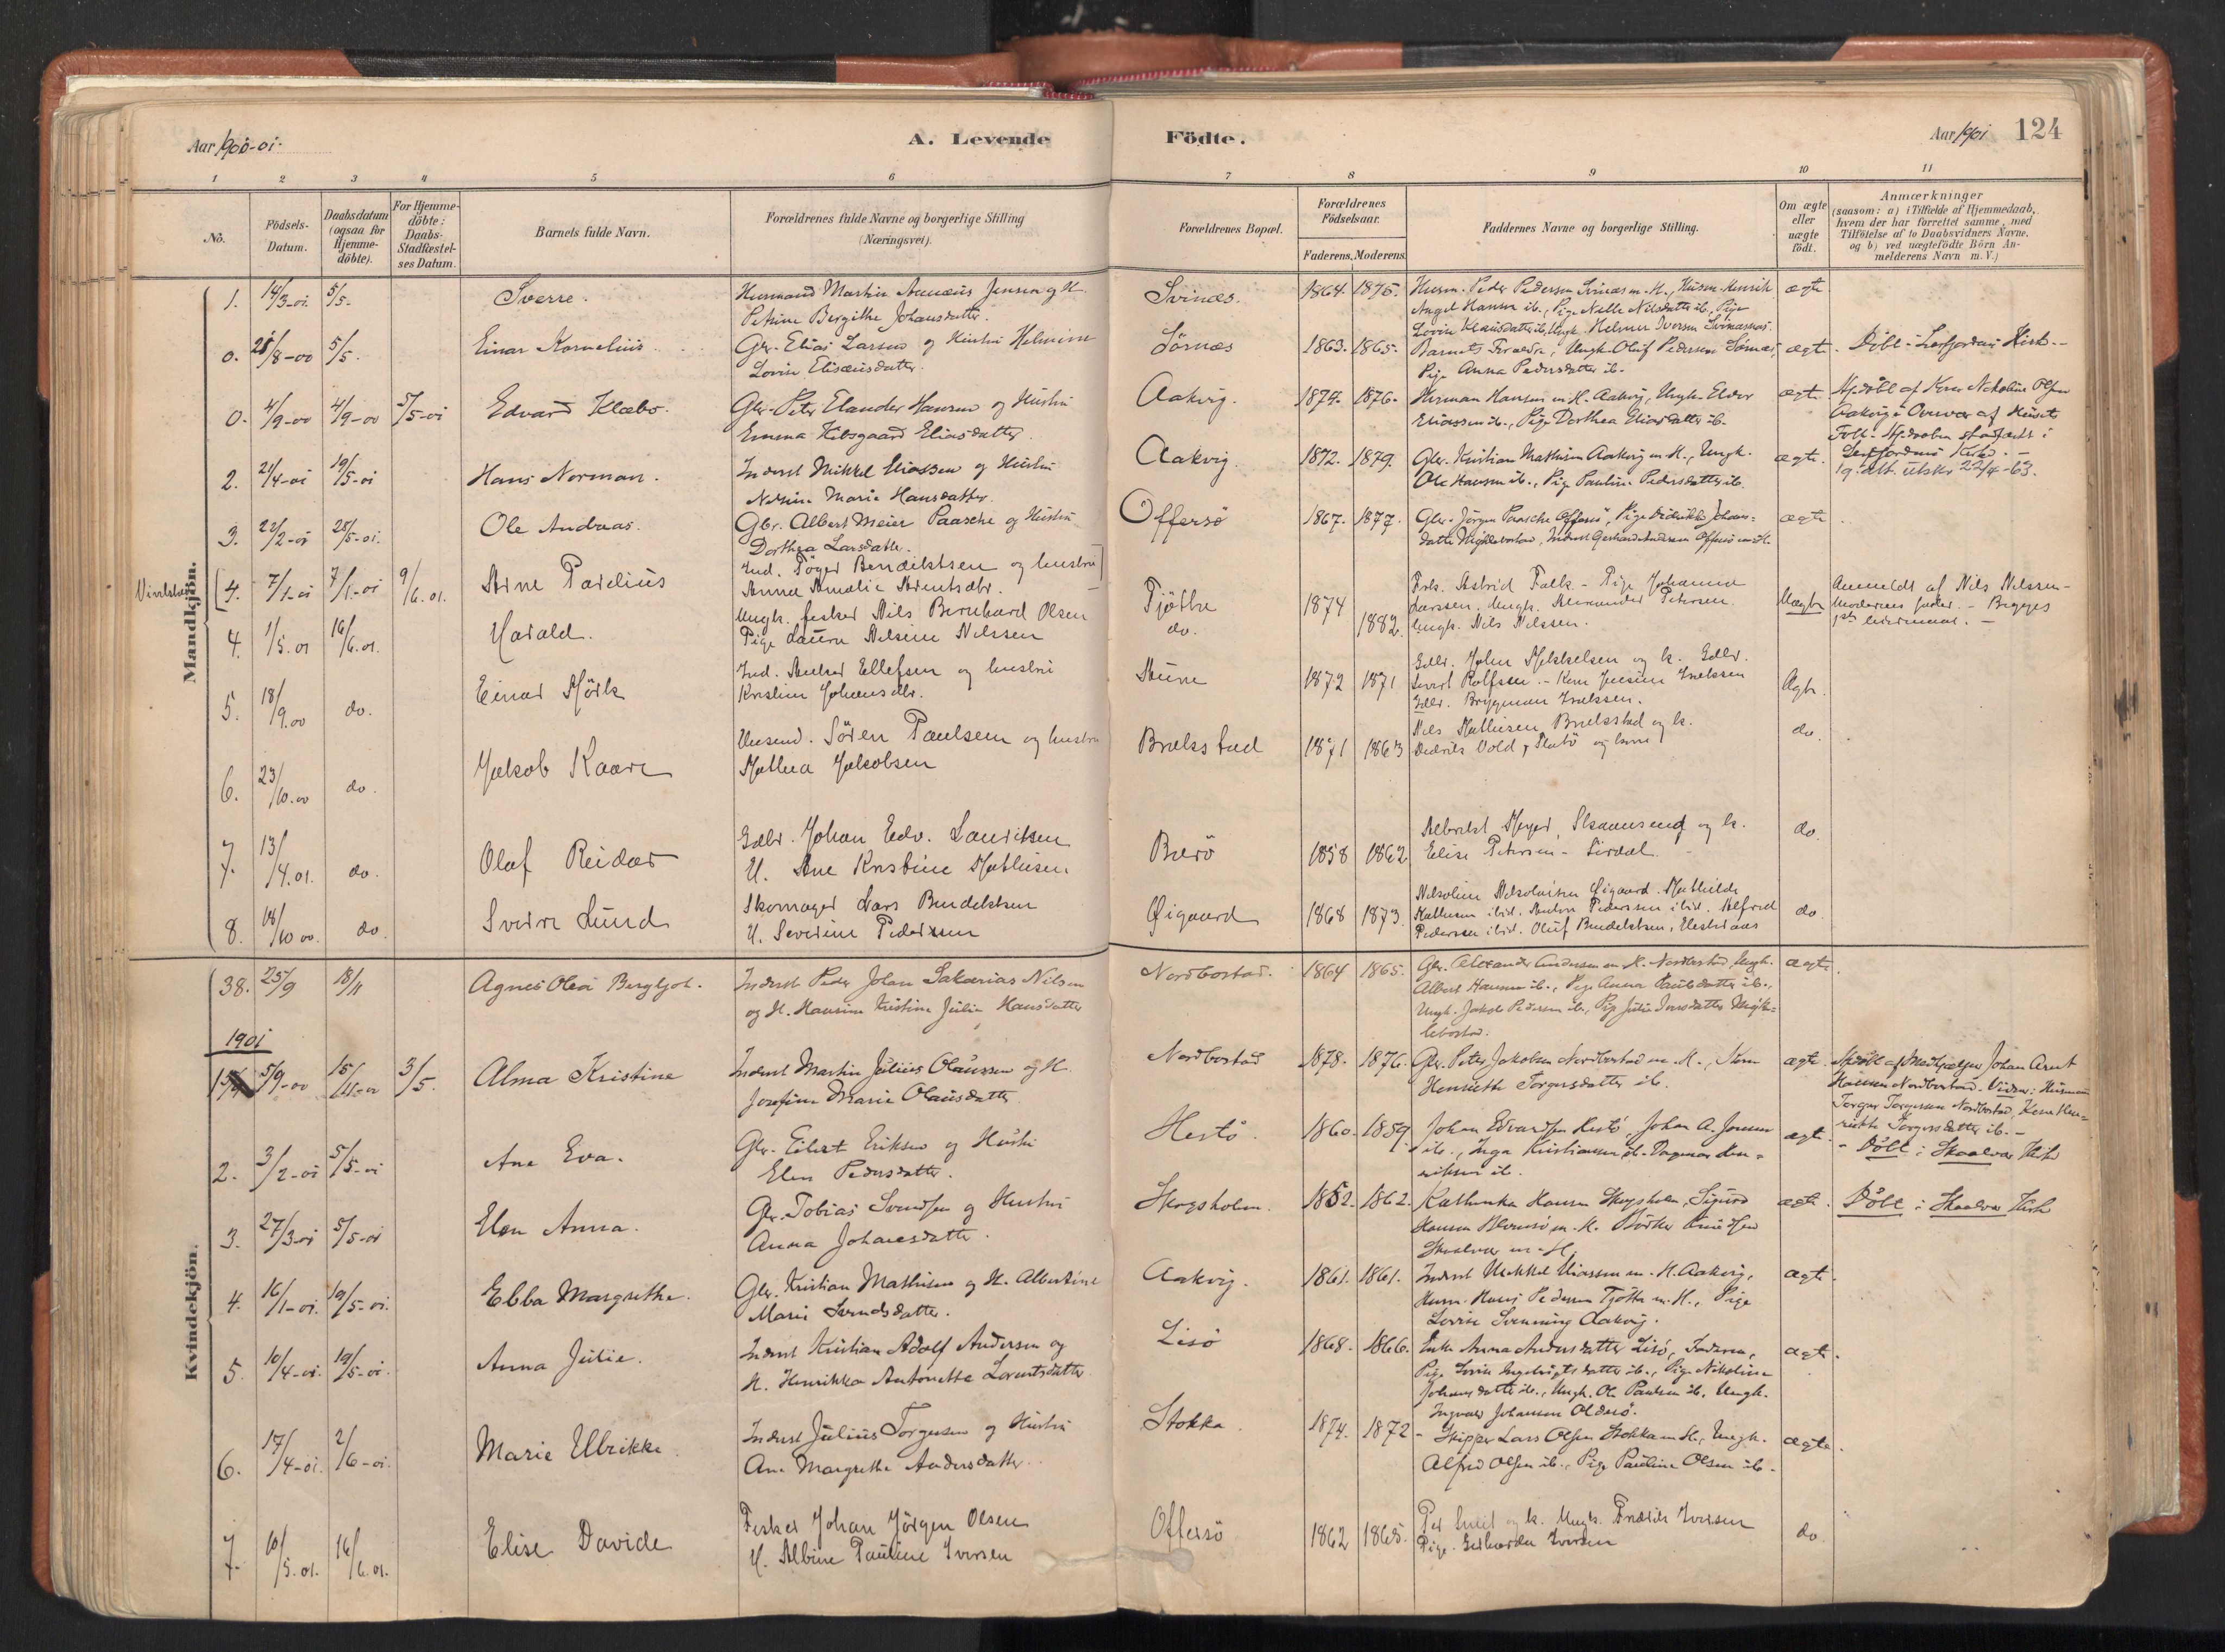 Aar 1900-01.
A. Levende
Födte.
Aar 1901
124
1 2 3 4 5 6 7 8 9 10 11
No.
Födsels-Datum.
Daabsdatum (ogsaa for Hjemme-döbte).
For Hjemme-döbte: Daabs-Stadfæstel-ses Datum.
Barnets fulde Navn.
Forældrenes fulde Navne og borgerlige Stilling (Næringsvei).
Forældrenes Bopæl.
Forældrenes Födselsaar.
Faderens. Moderens.
Faddernes Navne og borgerlige Stilling.
Om ægte eller uægte födt.
Anmærkninger
(saasom: a) i Tilfælde af Hjemmedaab,
hvem der har forrettet samme, med
Tilföielse af to Daabsvidners Navne,
og b) ved uægtefödte Börn An-
melderens Navn m. V.)
Mandkjön.
1. 14/3-01. 5/5- Sverre. Husmand Martin Jensen og H.
Petrine Bergithe Johansdatter.
Svinæs. 1864. 1875. Husm. Peder Pedersen Svinæs m. H., Husm. Henrik
Angel Hansen ib., Pige Nilsdatter ib., Pige
Lovise Klausdatter ib., Ungk. Helmer Iversen Svinæs
ægte
0. 28/8-00 5/5. Einar Kornelius Gbr. Elias Larsen og Hustru Helmine
Lovise Elisæusdatter.
Sörnæs 1863. 1865. Barnets Forældre, Ungk. Oluf Pedersen Sörnæs,
Pige Anna Pedersdatter ib.
ægte. Döbt i Leirfjordens Kirk.-
0. 4/9-00 4/9-00 5/5-01 Edvard Klæbo. Gbr. Peter Elander Hansen og Hustru
Emma Kibsgaard Eliasdatter
Aakvig. 1874. 1876. Herman Hansen m H. Aakvig, Ungk.
Eliassen ib., Pige Dorthea Eliasdatter ib.
ægte. Hj. döbt af Kone Nikoline Olsen
Aakvig i Overvær af Husets
Folk. Hj. daaben stadfæstet i
Leirfjordens Kirke.-
2. 21/4-01 19/5-01 Hans Norman. Inderst Mikkel Eliassen og Hustru
Marie Hansdatter.
Aakvig. 1872. 1879. Gbr. Kristian Mathisen Aakvig m. H., Ungk.
Ole Hansen ib., Pige Pauline Pedersdatter ib.
ægte. 19. att. utskr 22/4-63.
3. 22/2-01 28/5-01. Ole Andreas. Gbr. Albert Meier Paasche og Hustru
Dorthea Larsdatter.
Offersö 1867. 1877. Gbr. Jörgen Paasche Offersö, Pige Johans-
datter, Inderst Gerhard Andersen Offersö m. H.
ægte
[4. 7/1-01 7/1-01 9/6.01. Arne Parelius Ind. Töger Bendiktsen og hustru]
Anna Amalie
4. 1/5.01 16/6.01. Harald. Ungk. fisker Nils Bernhard Olsen
Pige Laura Nilsine Nilssen
Tjötta
do. 1874 1882. Frk. Astrid Falk - Pige Johanna
Larssen. Ungk. Alexander Petersen.
Ungk. Nils Nilssen.
Uægte Anmeldt af Nils Nilssen-
Moderens fader. - Begges
1ste
5. 18/9.00 do. Einar Mörk Ind. Anker Ellefsen og hustru
Kristine Johansdtr.
1872 1871 Gdbr. John Mikkelsen og h. Gdbr.
Sivert Rolfssen. - Kone Jensine
Gdbr. Bryggman
Ægte.
6. 23/10.00 do. Jakob Kaare Sören Paulsen og hustru
Mathea Jakobsen
Brækstad 1871 1863 Nils Mathisen Brækstad og h.
Didrik Vold, og kone
do.
7. 13/4.01. do. Olaf Reidar Gdbr. Johan Edv. Lauritsen
H. Ane Kristine Mathisen.
Bærö 1858 1862 Albrikt Meyer, og h.
Elise Petersen -
do.
8. 18/10 00. do. Sverre Lund Skomager Lars Bendiktsen
H. Severine Pedersen
Öigaard 1868 1873. Öigaard. Mathilde
ibid. Anton Pederssen ibid. Alfred
Pederssen ibid. Oluf Bendiktsen,
do.
Kvindekjön.
38. 25/9 18/11 Agnes Olea Bergljot. Inderst Peder Johan Sakarias Nilsen
og H. Hansine Kristine Julie Hansdatter
Nordbostad. 1864 1865. Gbr. Alexander Andersen m. H. Nordbostad, Ungk.
Albert Hansen ib., Pige Anna Paulsdatter ib.,
Ungk. Jakob Pedersen ib., Pige Julie
ægte
1901
1. 5/9-00 15/11-00 3/5. Alma Kristine Inderst Martin Julius Olaussen og H.
Josefine Marie Olausdatter
Nordbostad 1878. 1876. Gbr. Peter Jakobsen Nordbostad m. H., Kone
Henriette Torgersdatter ib.
ægte Hj. döbt af Johan Arnt
Hansen Nordbostad. Vidner: Husmand
Torger Torgersen Nordbostad, Kone Hen-
riette Torgersdatter ib.-
2. 3/2-01 5/5-01 Ane Eva. Gbr. Eilert Eriksen og Hustru
Elen Pedersdatter.
Hestö. 1860. 1859. Johan Edvardsen Hestö, Johan A. Jensen
ib., Inga Kristiansen ib. Dagmar Hen-
riksen ib.
ægte. - Döbt i Skaalvær Kirke
3. 27/3-01 5/5-01 Elen Anna. Gbr. Tobias Svendsen og Hustru
Anna Johannesdatter.
Skogsholm. 1852. 1862. Kathinka Hansen Skogsholm, Sigurd
Hansen m. H.
Skaalvær m. H.
ægte. Döbt i Skaalvær Kirke
4. 16/1-01. 19/5-01. Ebba Margrethe. Gbr. Kristian Mathisen og H. Albertine
Marie Svendsdatter.
Aakvig. 1861. 1861. Inderst Mikkel Eliassen m. H. Aakvig,
Husm. Hans Pedersen Tjötta m. H., Pige
Lovise Svenning Aakvig.
ægte.
5. 10/4-01. 19/5-01. Anna Julie. Inderst Kristian Adolf Andersen og
H. Henrikka Antonette Lorentsdatter
Lisö 1868. 1866. Enke Anna Andersdatter Lisö, Faderen,
Pige Lovise Ingebrigtsdatter ib., Pige Nikoline
Johansdatter ib., Ungk. Ole Paulsen ib. Ungk.
Ingvald Johansen Oldersö.
ægte.
6. 17/4-01. 2/6-01. Marie Ulrikke. Inderst Julius Torgersen og Hustru
Ane Margrethe Andersdatter.
Stokka. 1874. 1872 - Skipper Lars Olsen Stokka m. H., Ungk.
Alfred Olsen ib., Pige Pauline Olsen ib.
ægte.
7. 10/5.01. 16/6.01. Elise Davide Fisker Johan Jörgen Olsen
H. Albine Pauline Iversen
Offersö 1862 1865. og h. Ungk. Fredrik Iversen
Pige. Iversen
do.